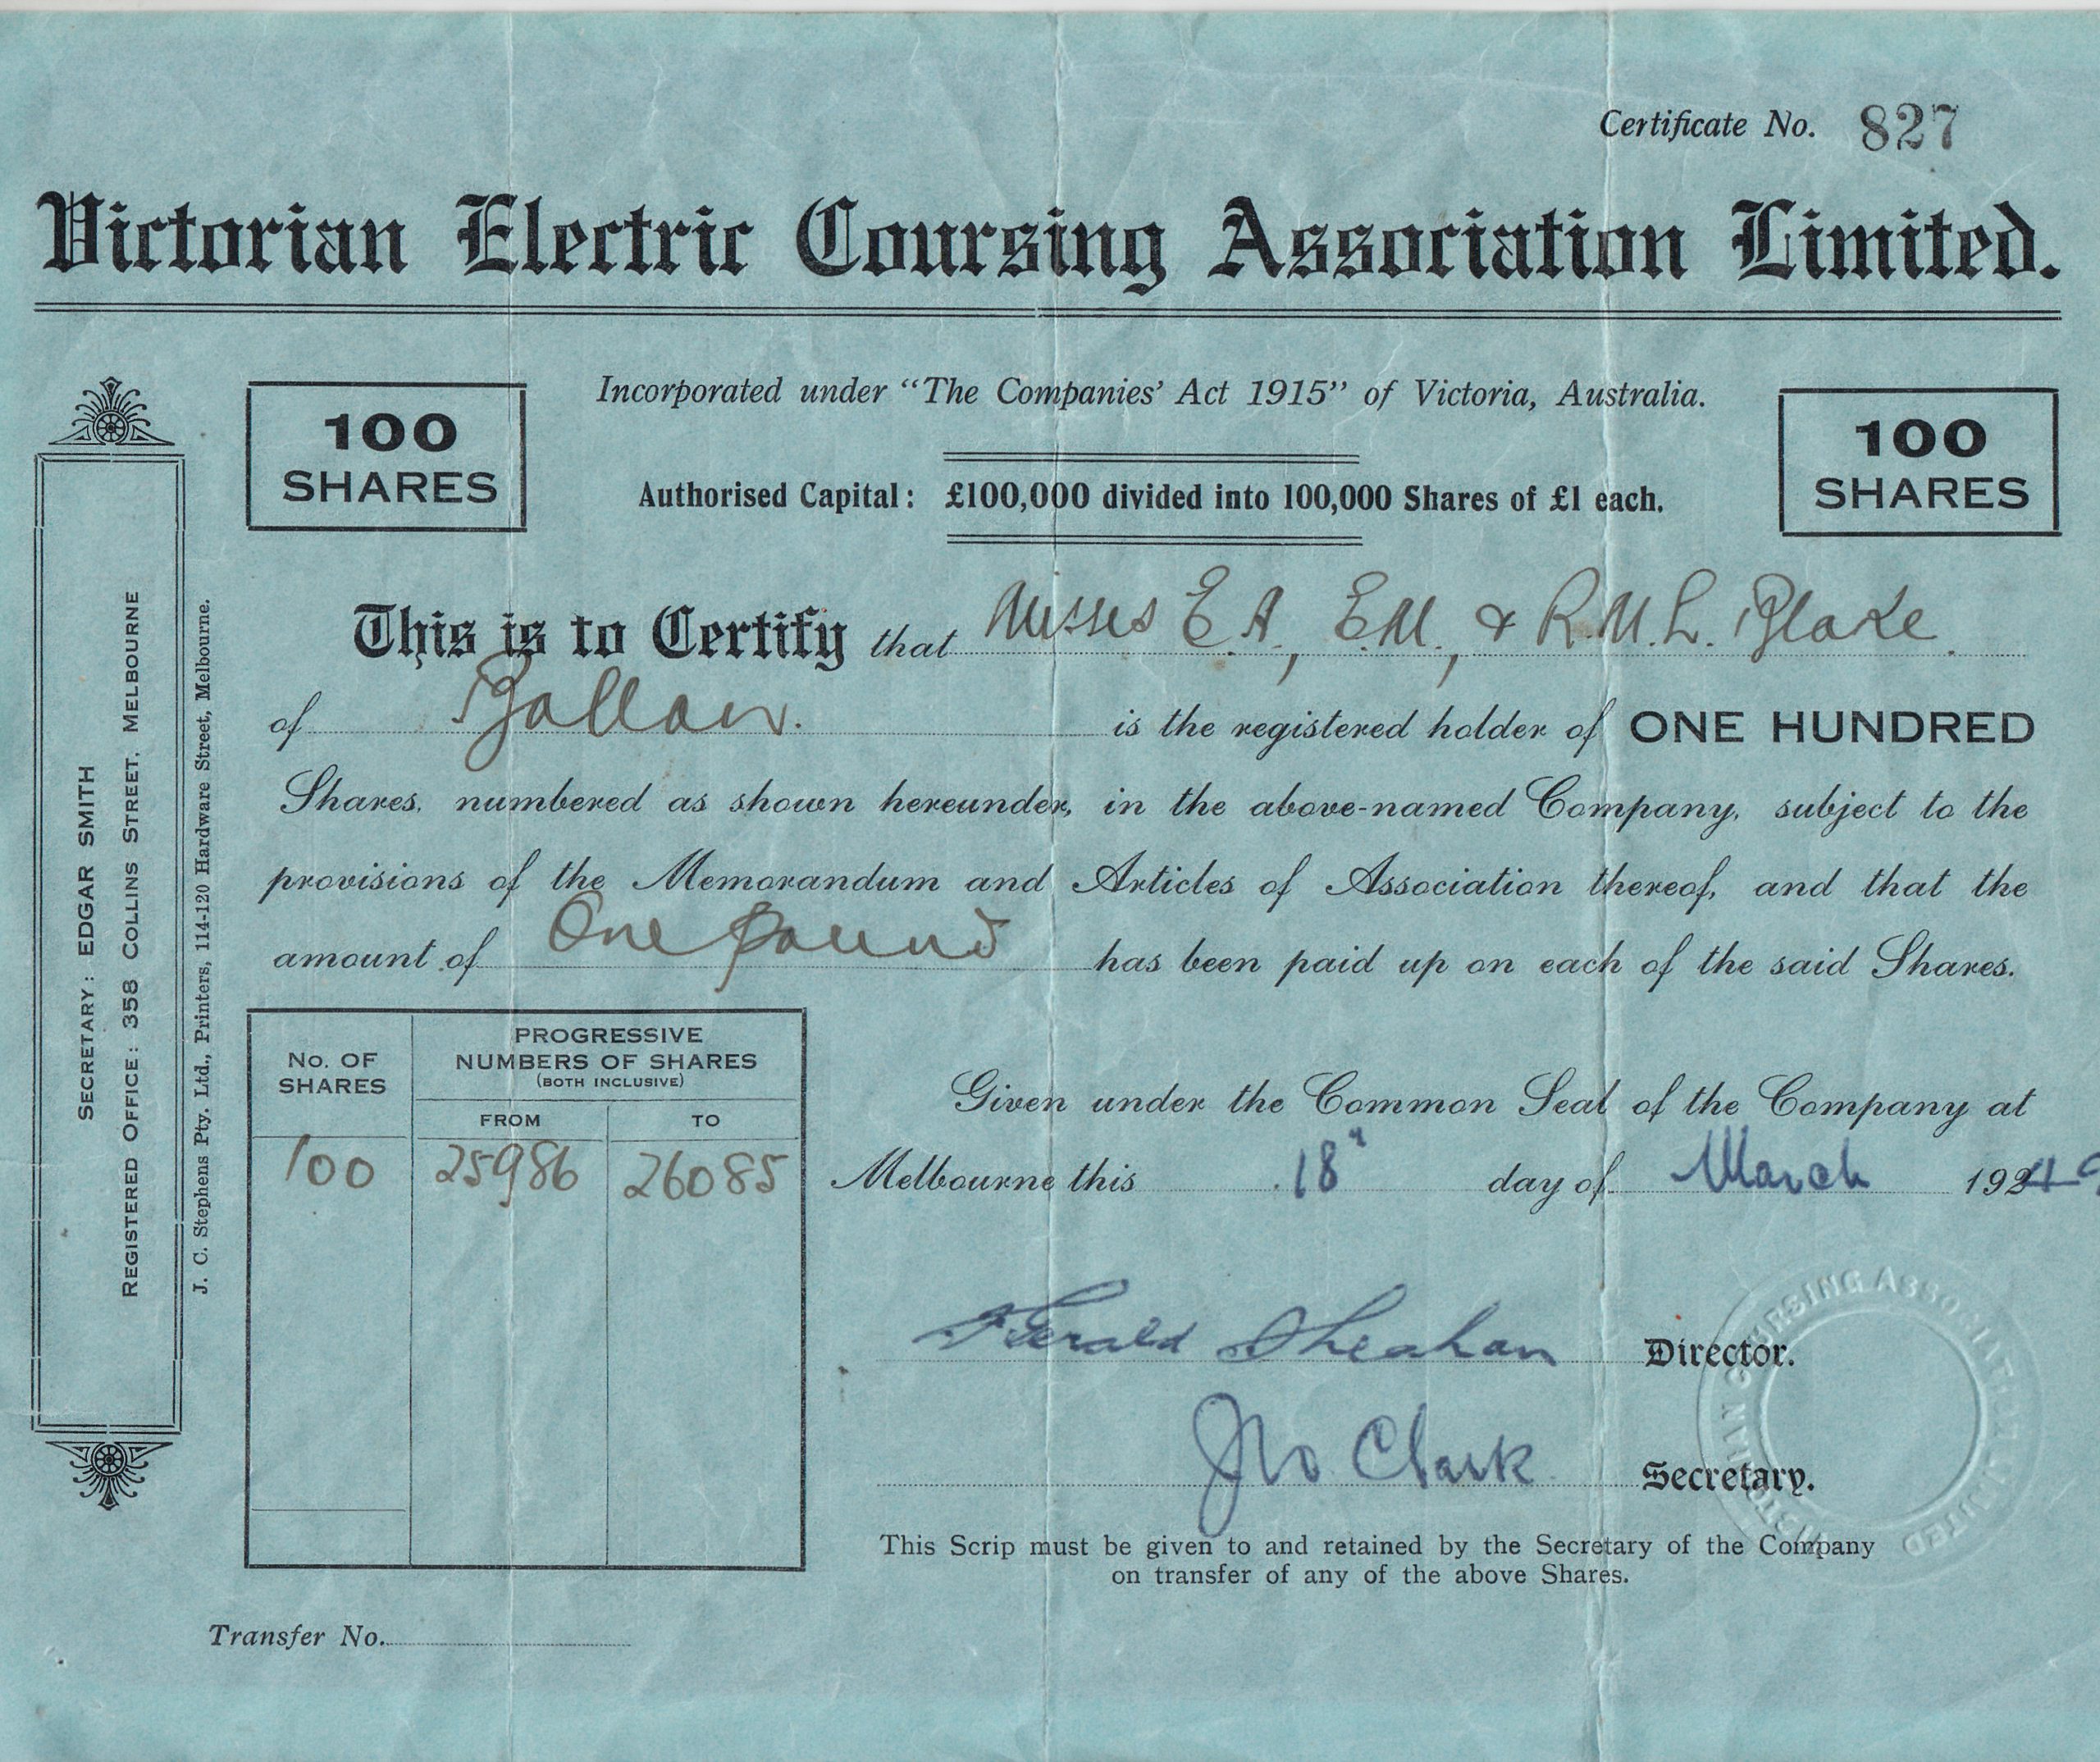 Certificate No. 827
Victorian Electric Coursing Association Limited.
100
SHARES
Incorporated under “The Companies’ Act 1915” of Victoria, Australia.
Authorised Capital: £100,000 divided into 100,000 Shares of £1 each.
100
SHARES
SECRETARY: EDGAR SMITH
REGISTERED OFFICE: 358 COLLINS STREET, MELBOURNE
J. C. Stephens Pty. Ltd., Printers, 114-120 Hardware Street, Melbourne.
This is to Certify that Misses E.A., E.M., & R.M.L. Blake.
of Ballan. is the registered holder of ONE HUNDRED
Shares, numbered as shown hereunder, in the above-named Company, subject to the
provisions of the Memorandum and Articles of Association thereof, and that the
amount of One pound has been paid up on each of the said Shares.
No. OF
SHARES
PROGRESSIVE
NUMBERS OF SHARES
(BOTH INCLUSIVE)
FROM
TO
100 25986 26085
Given under the Common Seal of the Company at
Melbourne this 18" day of March 19
Gerald Sheahan Director.
Jno Clark Secretary.
VICTORIAN COURSING ASSOCIATION LIMITED
This Scrip must be given to and retained by the Secretary of the Company
on transfer of any of the above Shares.
Transfer No.